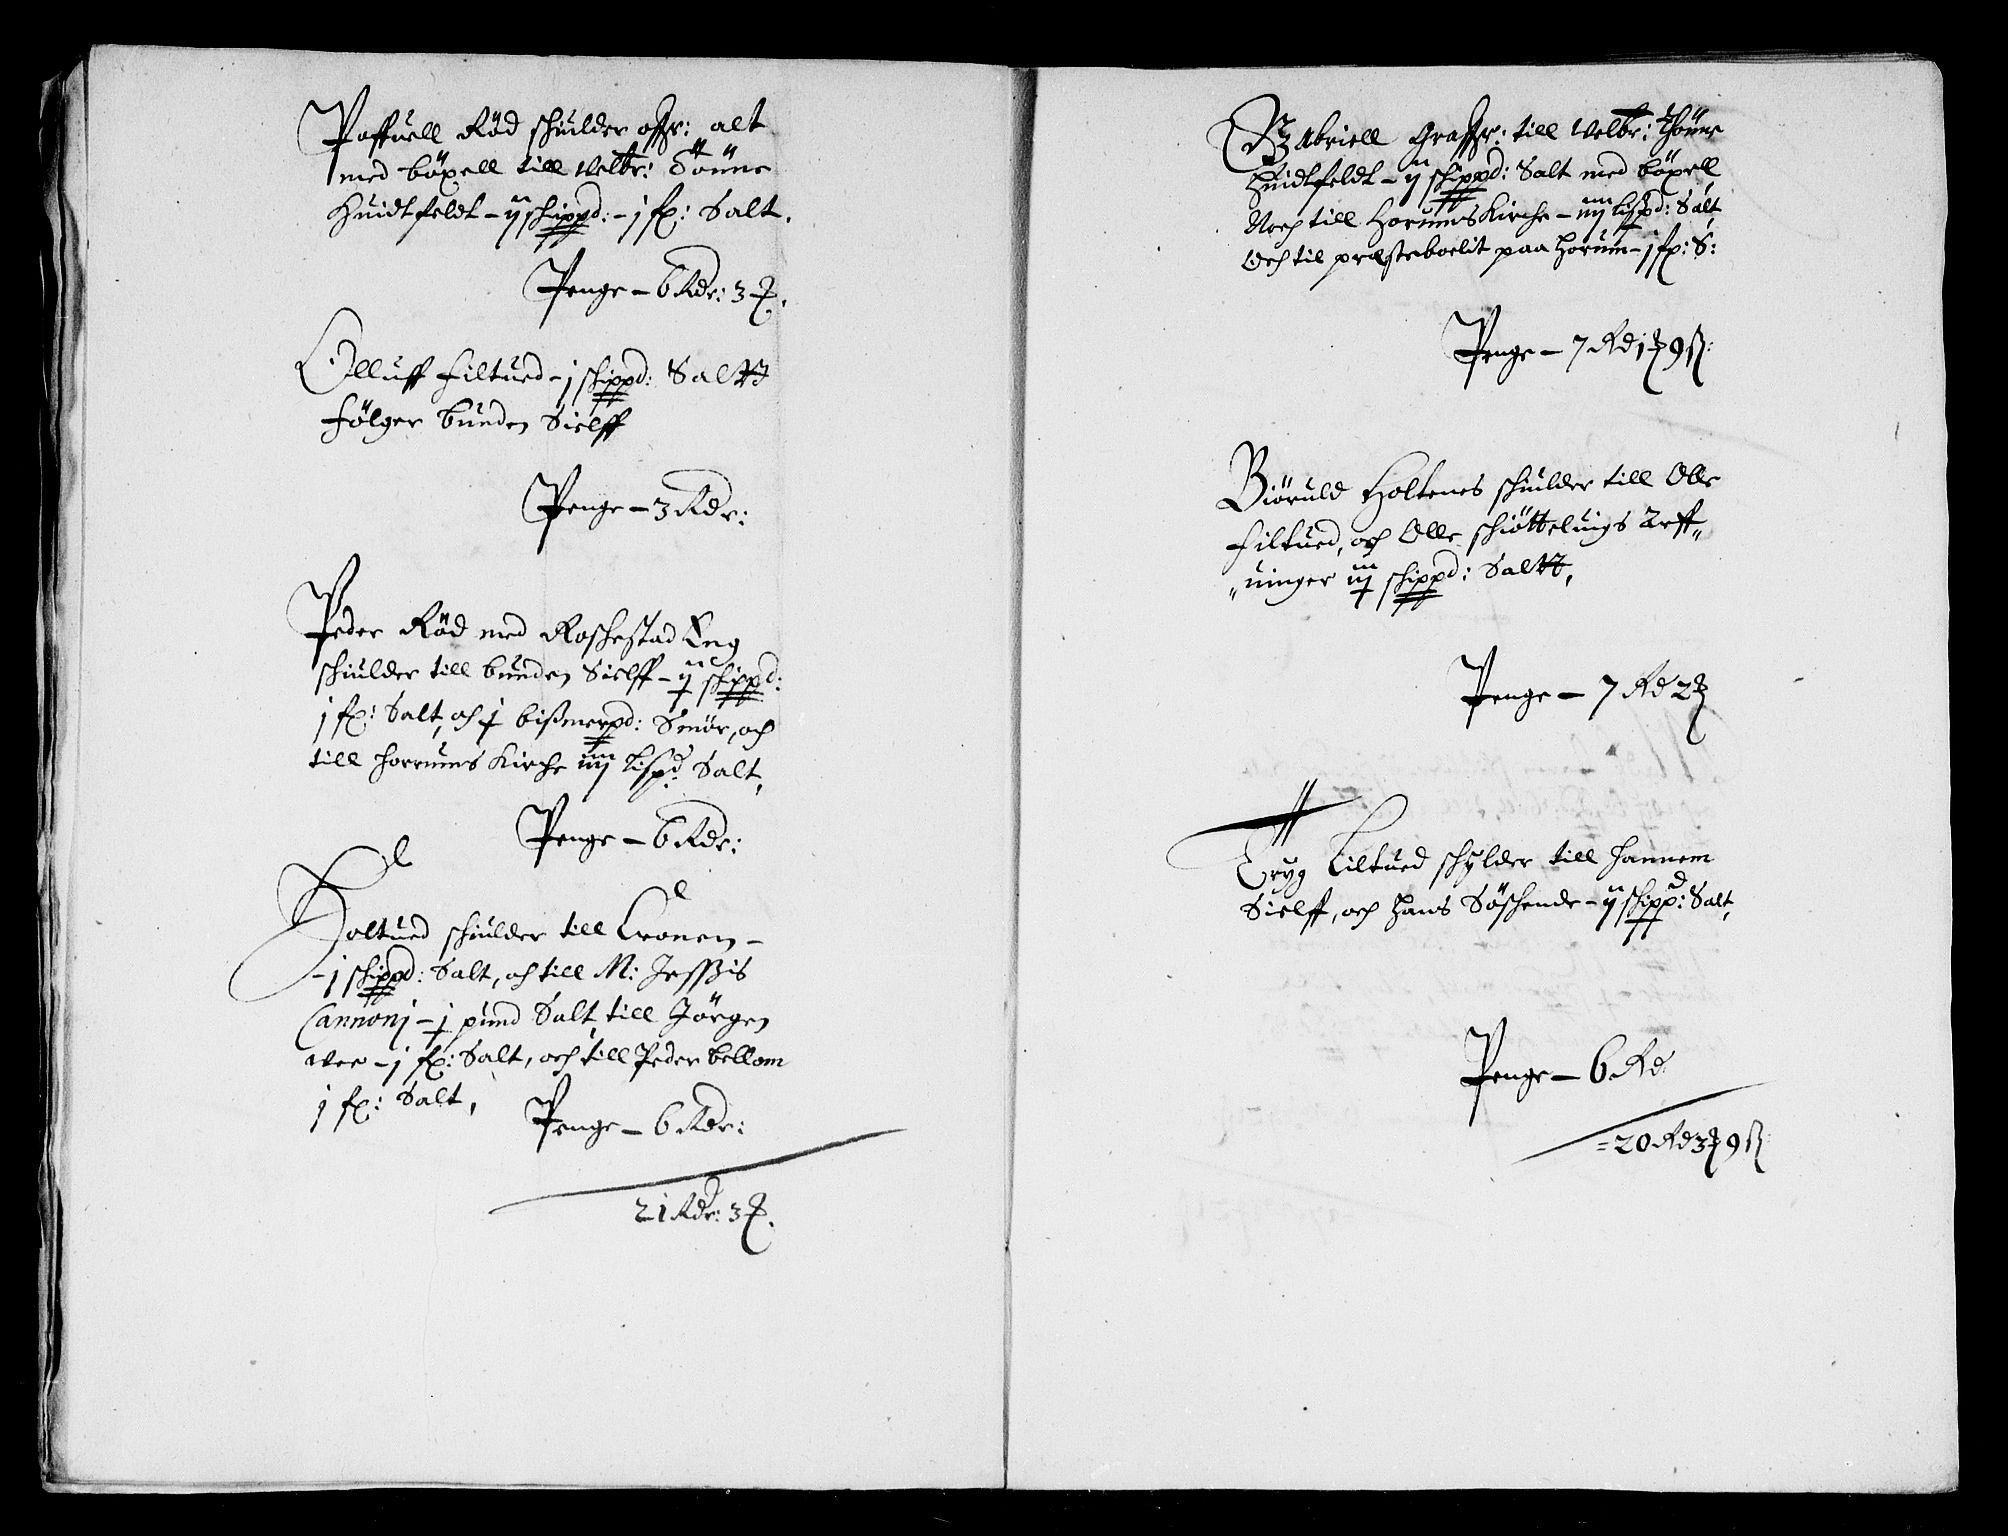 Paffuell Rød schiulder offr: alt
med böxell till Velbr: Tönne
Huidtfeldt - ij schippd: - j fx: Salt.
Penge - 6 Rdr: 3
Olluff Filtued - j schippd: Saltt
Følger bunden Sielff
Penge - 3 Rdr:
Peder Rød med Roschestad Eng
schiulder till bunden Sielff - ij schippd:
j fx: Salt, och j bißmerpd: Smör, och
till Horrums Kirche iiij Lispd Salt,
Penge - 6 Rdr:
Holtued schiulder till Cronen -
- j schippd: Salt, och till M: Jesßis
Cannonj - j pund Salt, till Jörgen
- j fx: Salt, och till Peder bellom
j fx: Salt,
Penge - 6 Rdr:
21 Rdr: 3
Gabriell Graffr: till Velbr: Thönne
Huidtfeldt - ij schippd: Salt med böxell
Noch till Horums Kirche - iiij lispd: Salt
Och til præsteboelit paa Horum - j fx: S:
Penge - 7 Rd 1 9 ß:
Biöruld Holtenes schiulder till Olle
Filtued, och Olle schiöttelungs Arff„
„uinger iij schippd: Saltt,
Penge - 7 Rd 2
Tryg Liltued schylder till hannem
Sielff, och hans Söschende - ij schippd: Salt,
Penge - 6 Rd
= 20 Rd 3 9 ß